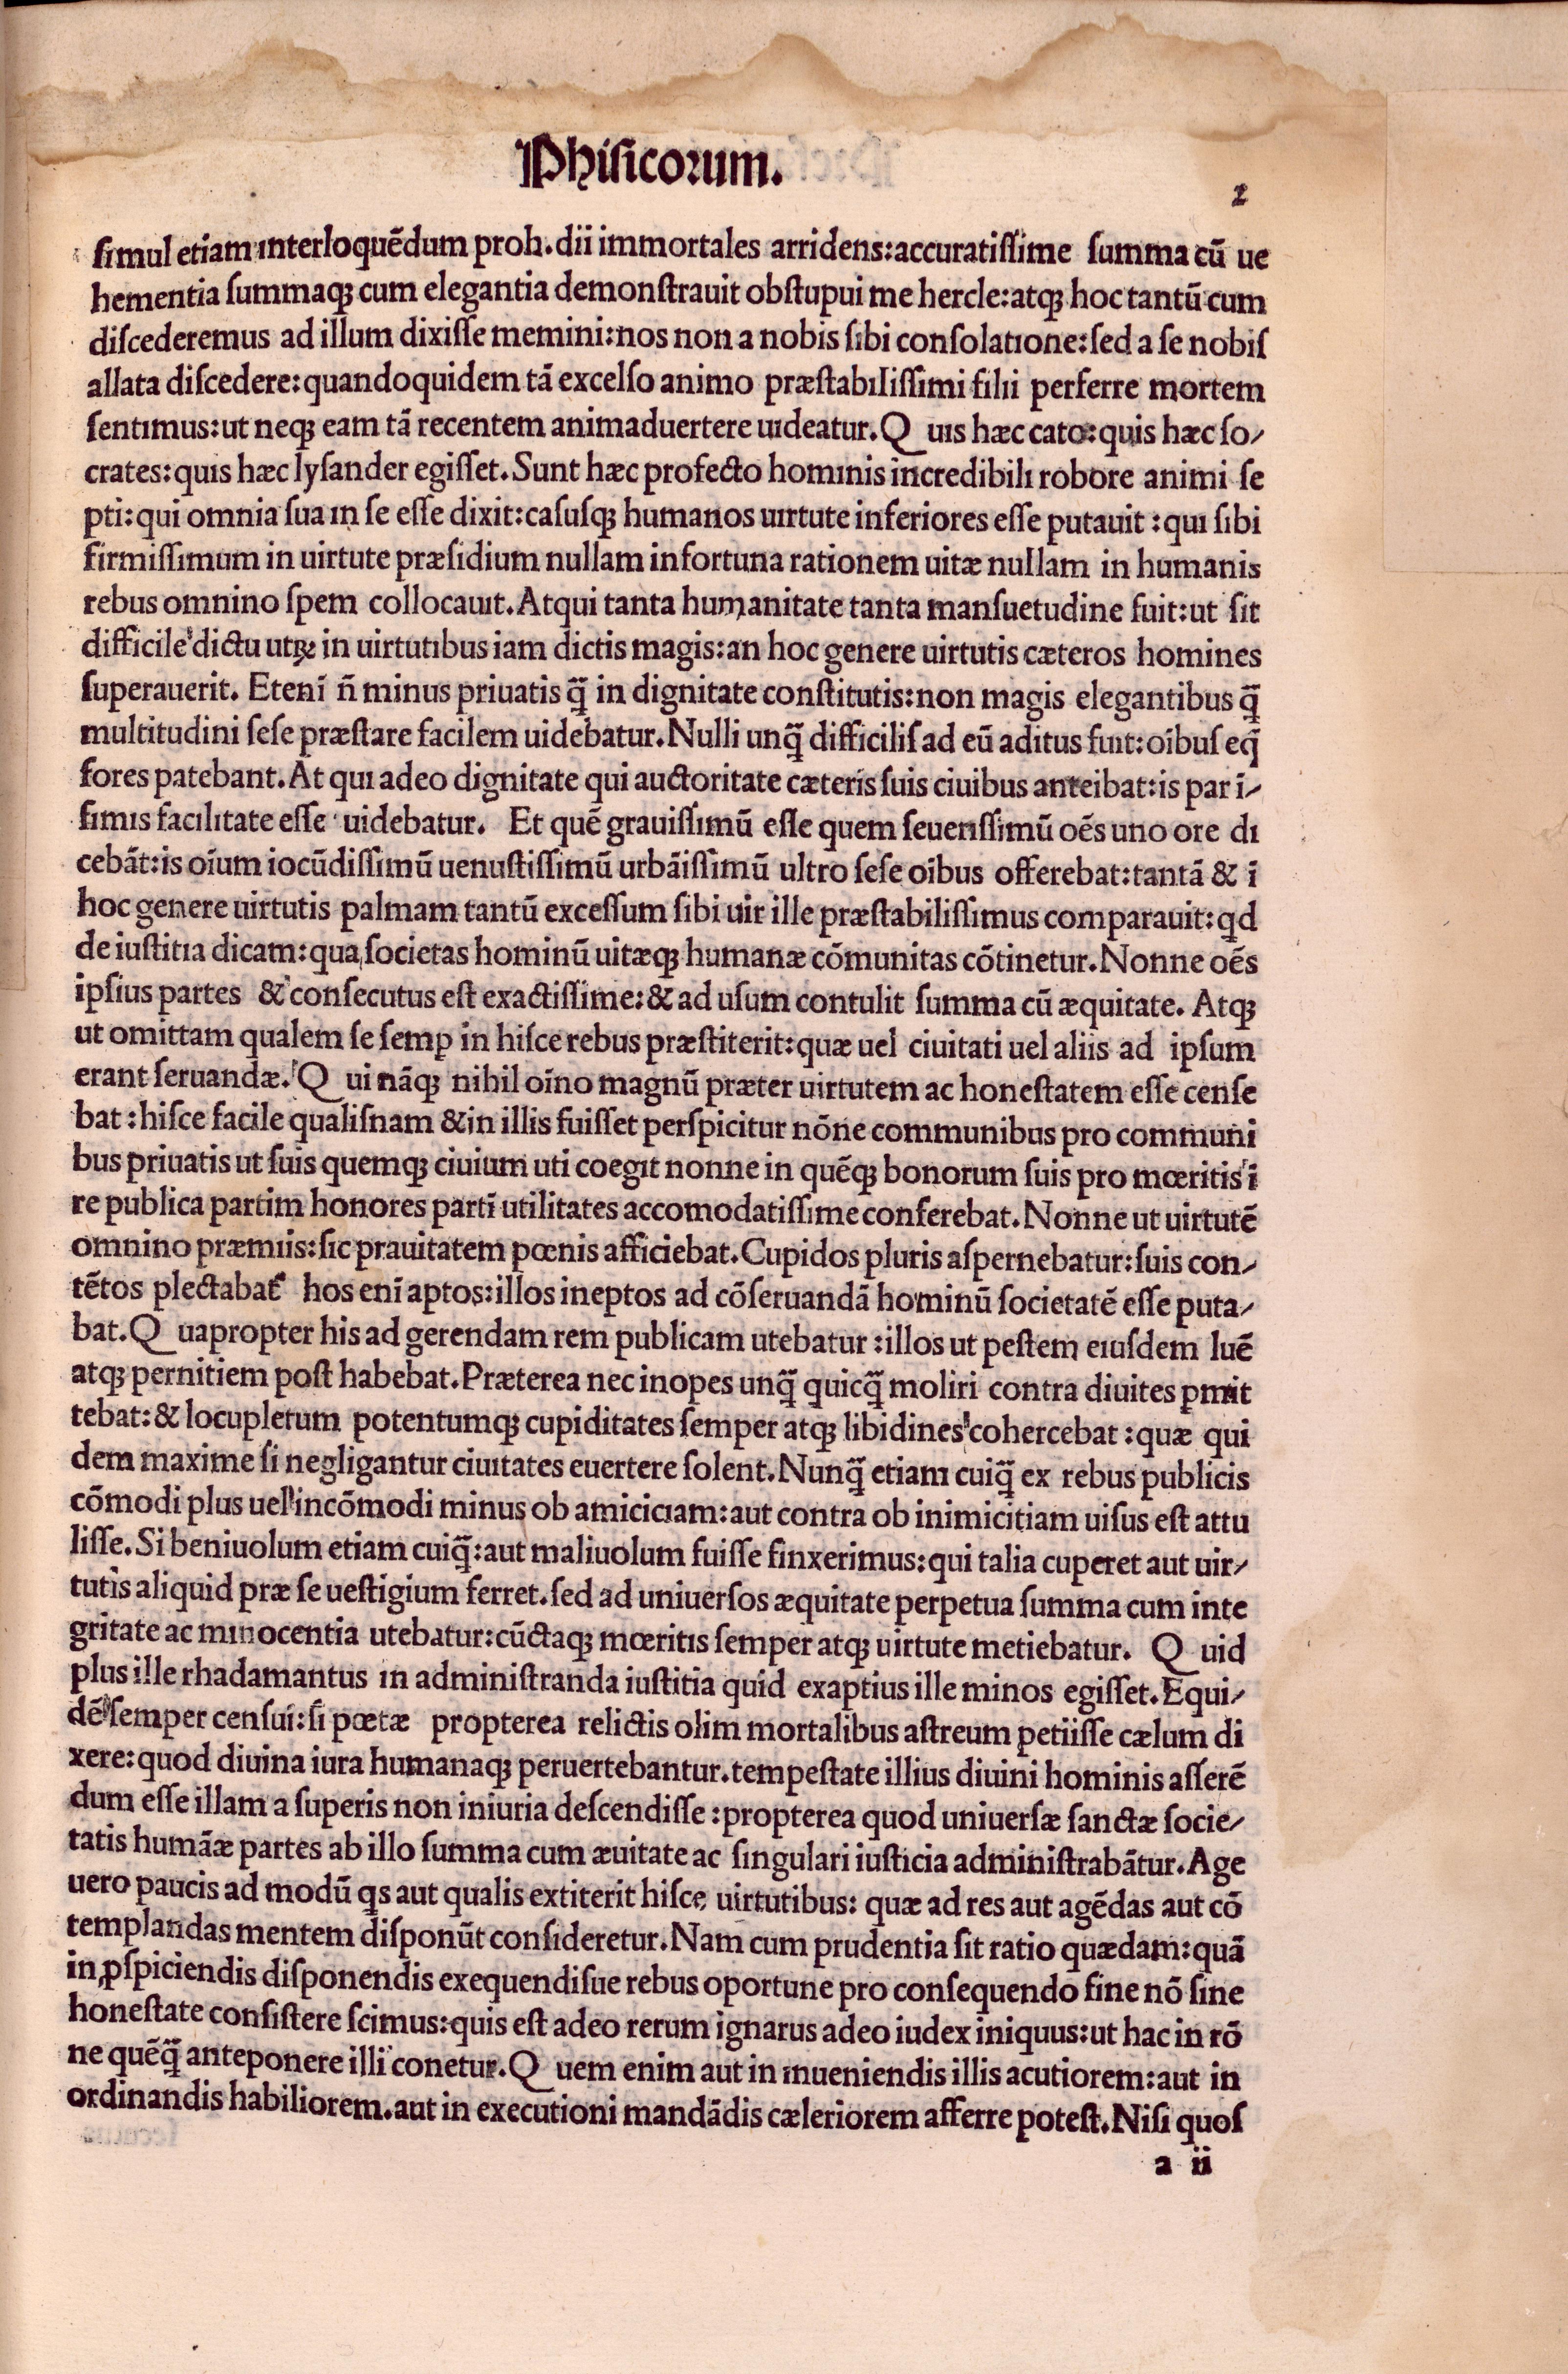 Phisicorum.
2
simul etiam interloquēdum proh. dii immortales arridens: accuratissime summa cū ue
hementia summaqꝫ cum elegantia demonstrauit obstupui me hercle: atqꝫ hoc tantū cum
discederemus ad illum dixisse memini: nos non a nobis sibi consolatione: sed a se nobis
allata discedere: quandoquidem tā excelso animo præstabilissimi filii perferre mortem
sentimus: ut neqꝫ eam tā recentem animaduertere uideatur. Q uis hæc cato: quis hæc so/
crates: quis hæc lysander egisset. Sunt hæc profecto hominis incredibili robore animi se
pti: qui omnia sua in se esse dixit: casusqꝫ humanos uirtute inferiores esse putauit: qui sibi
firmissimum in uirtute præsidium nullam infortuna rationem uitæ nullam in humanis
rebus omnino spem collocauit. Atqui tanta humanitate tanta mansuetudine fuit: ut sit
difficile dictu utꝝ in uirtutibus iam dictis magis: an hoc genere uirtutis cæteros homines
superauerit. Etenī n̄ minus priuatis q̄ in dignitate constitutis: non magis elegantibus q̄
multitudini sese præstare facilem uidebatur. Nulli unq̄ difficilis ad eū aditus fuit: oībus eq̄
fores patebant. At qui adeo dignitate qui auctoritate cæteris suis ciuibus anteibat: is par ī/
fimis facilitate esse uidebatur. Et quē grauissimū esse quem seuerissimū oēs uno ore di
cebāt: is oīum iocūdissimū uenustissimū urbāissimū ultro sese oībus offerebat: tantā & ī
hoc genere uirtutis palmam tantū excessum sibi uir ille præstabilissimus comparauit: qd
de iustitia dicam: qua societas hominū uitæqꝫ humanæ cōmunitas cōtinetur. Nonne oēs
ipsius partes & consecutus est exactissime: & ad usum contulit summa cū æquitate. Atqꝫ
ut omittam qualem se semꝑ in hisce rebus præstiterit: quæ uel ciuitati uel aliis ad ipsum
erant seruandæ. Q ui nāqꝫ nihil oīno magnū præter uirtutem ac honestatem esse cense
bat: hisce facile qualisnam & in illis fuisset perspicitur nōne communibus pro communi
bus priuatis ut suis quemqꝫ ciuium uti coegit nonne in quēqꝫ bonorum suis pro mœritis ī
re publica partim honores partī utilitates accomodatissime conferebat. Nonne ut uirtutē
omnino præmiis: sic prauitatem pœnis afficiebat. Cupidos pluris aspernebatur: suis con/
tētos plectabat᷑ hos enī aptos: illos ineptos ad cōseruandā hominū societatē esse puta/
bat. Q uapropter his ad gerendam rem publicam utebatur: illos ut pestem eiusdem luē
atqꝫ pernitiem post habebat. Præterea nec inopes unq̄ quicq̄ moliri contra diuites ꝑmit
tebat: & locupletum potentumqꝫ cupiditates semper atqꝫ libidines cohercebat: quæ qui
dem maxime si negligantur ciuitates euertere solent. Nunq̄ etiam cuiq̄ ex rebus publicis
cōmodi plus uel incōmodi minus ob amiciciam: aut contra ob inimicitiam uisus est attu
lisse. Si beniuolum etiam cuiq̄: aut maliuolum fuisse finxerimus: qui talia cuperet aut uir/
tutis aliquid præ se uestigium ferret. sed ad uniuersos æquitate perpetua summa cum inte
gritate ac minocentia utebatur: cūctaqꝫ mœritis semper atqꝫ uirtute metiebatur. Q uid
plus ille rhadamantus in administranda iustitia quid exaptius ille minos egisset. Equi/
dē semper censui: si pœtæ propterea relictis olim mortalibus astreum petiisse cælum di
xere: quod diuina iura humanaqꝫ peruertebantur. tempestate illius diuini hominis asserē
dum esse illam a superis non iniuria descendisse: propterea quod uniuersæ sanctæ socie/
tatis humāæ partes ab illo summa cum æuitate ac singulari iusticia administrabātur. Age
uero paucis ad modū qs aut qualis extiterit hisce uirtutibus: quæ ad res aut agēdas aut cō
templandas mentem disponūt consideretur. Nam cum prudentia sit ratio quædam: quā
in ꝓspiciendis disponendis exequendisue rebus oportune pro consequendo fine nō sine
honestate consistere scimus: quis est adeo rerum ignarus adeo iudex iniquus: ut hac in rō
ne quēq̄ anteponere illi conetur. Q uem enim aut in inueniendis illis acutiorem: aut in
ordinandis habiliorem. aut in executioni mandādis cæleriorem afferre potest. Nisi quos
a ii